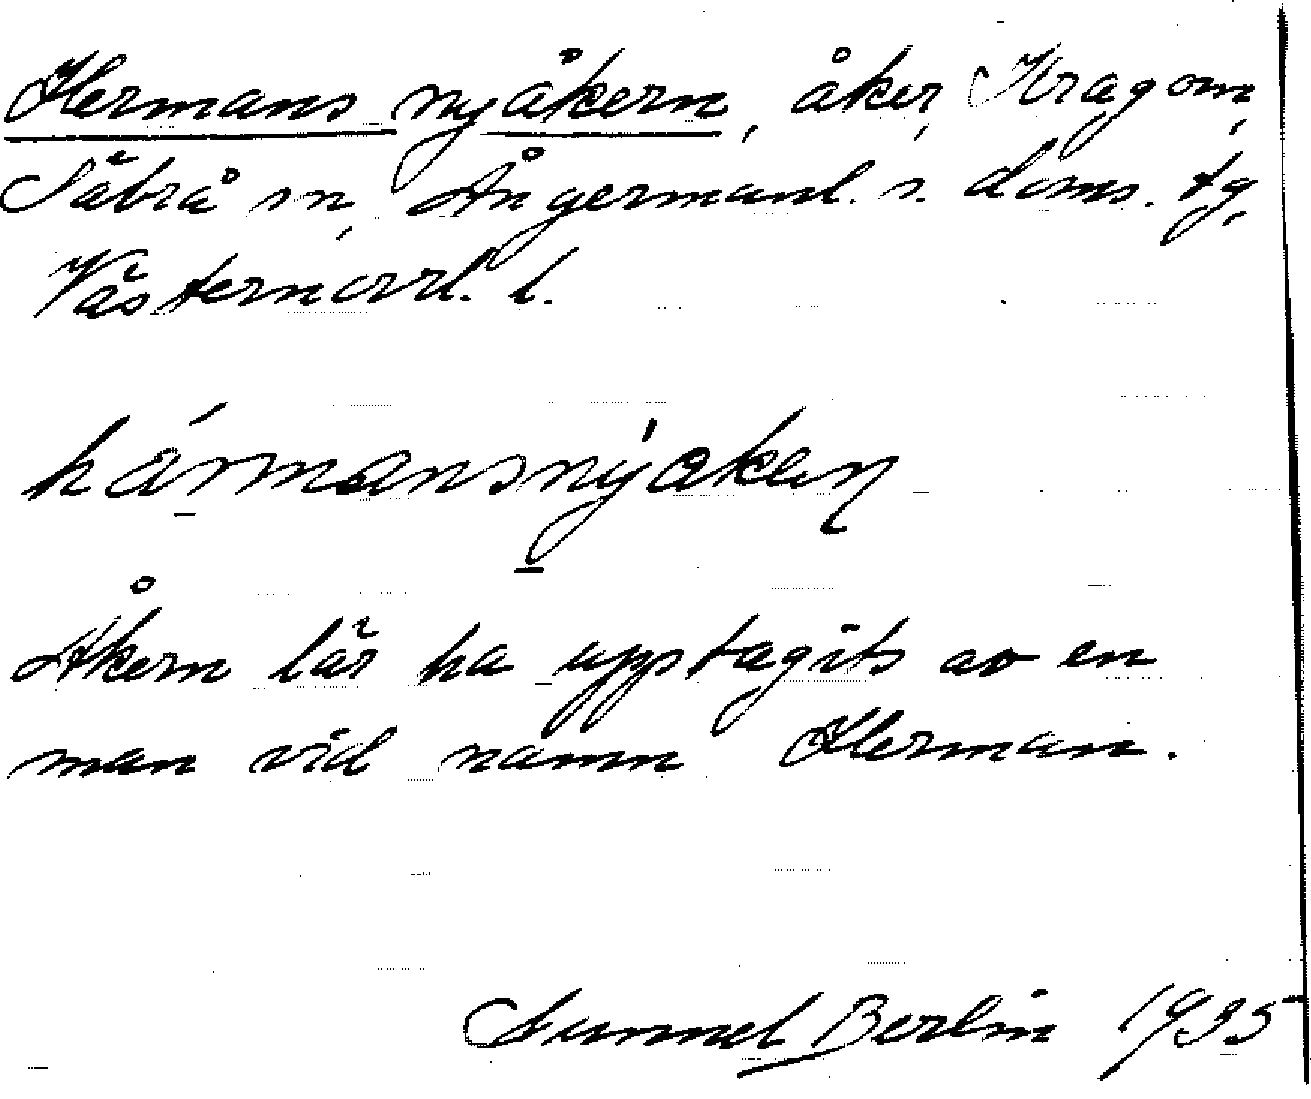 Hermans nyåkern, åker, Kragom,
Säbrå sn, Ångermanl. s. doms. tg,
Västernorrl. l.
hármansnýaken
Åkern lär ha upptagits av en
man vid namn Herman.
Gunnel Berlin 1935